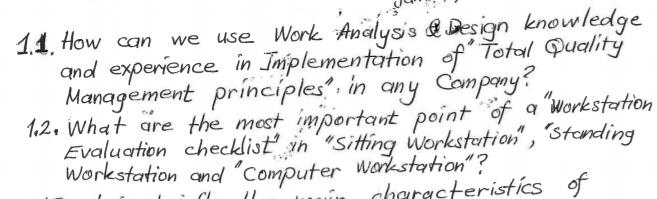 1.1. How can we use Work Analysis & Design knowledge
and experience in Implementation of "Total Quality
Management principles", in any Company?
1.2. What are the most important point of a "Workstation
Evaluation checklist" in "Sitting Workstation", "Standing
Workstation and "Computer Workstation"?
characteristics of